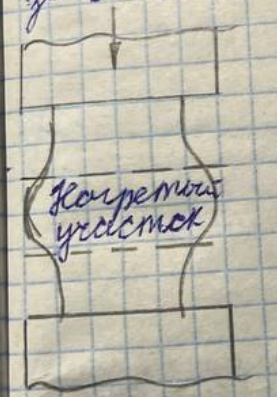 Нагретый
участок